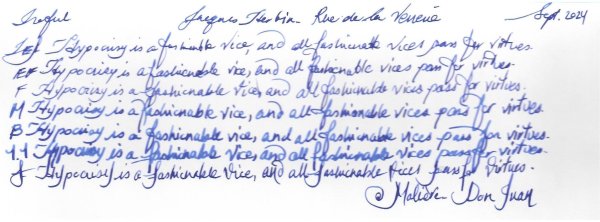 Jacques Herbin - Rue de la Verrerie Sept. 2024
EF Hypocrisy is a fashionable vice, and all fashionable vices pass for virtues.
EF Hypocrisy is a fashionable vice, and all fashionable vices pass for virtues.
F Hypocrisy is a fashionable vice, and all fashionable vices pass for virtues.
M Hypocrisy is a fashionable vice, and all fashionable vices pass for virtues.
B Hypocrisy is a fashionable vice, and all fashionable vices pass for virtues.
1.1 Hypocrisy is a fashionable vice, and all fashionable vices pass for virtues.
Hypocrisy is a fashionable vice, and all fashionable vices pass for virtues.
Molière - Don Juan